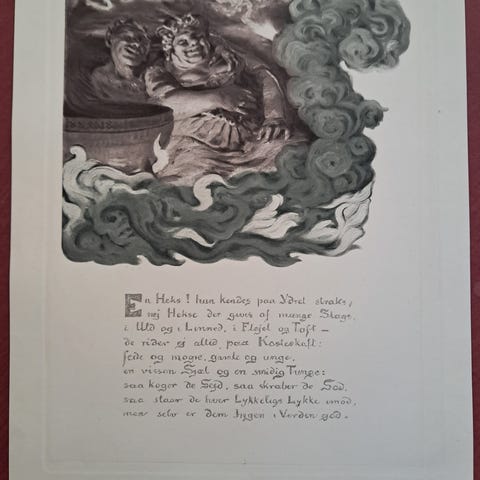 En Heks! hun kendes paa Ydret straks;
nej Hekse der gives af mange Slags.
i Uld og i Linned, i Fløjel og Taft —
de rider ej altid paa Kosteskaft:
fede og magre, gamle og unge,
en vissen Sjæl og en smidig Tunge:
saa koger de Sejd, saa skraber de Sod,
saa staar de hver Lykkeligs Lykke imod,
men selv er dem Ingen i Verden god.